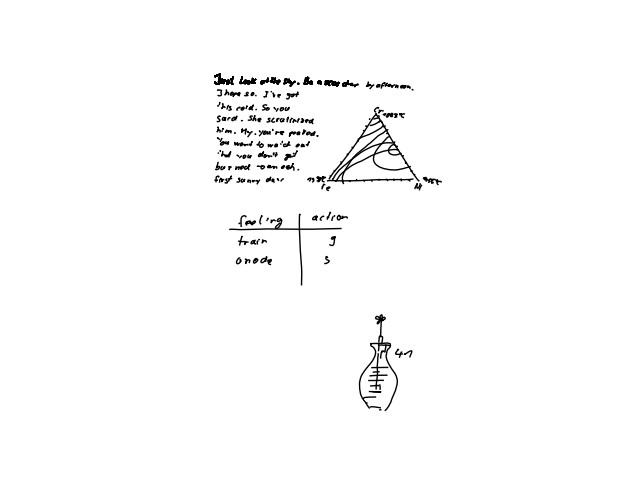 Just look at the sky. Be a scorcher by afternoon.
I hope so. I've got
this cold. So you
said. She scrutinized
him. My, you're peaked.
You want to watch out
that you don't get
burned to an ash.
first sunny day
Cr
Fe
feeling action
train 9
anode s